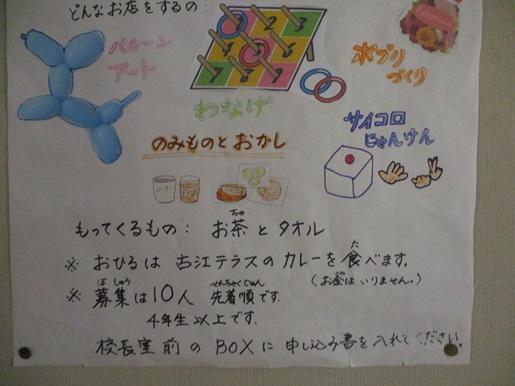 どんなお店をするの:
バルーン
アート
1 2 3
わなげ
ポプリ
づくり
のみものとおかし
サイコロ
じゃんけん
もってくるもの: お茶とタオル
ちゃ
※ おひるは 古江テラスのカレーを食べます。
た
(お金はいりません。)
※ 募集は10人 先着順です。
ぼしゅう
せんちゃくじゅん
4年生以上です.
校長室前のBOXに申し込み書を入れてください。